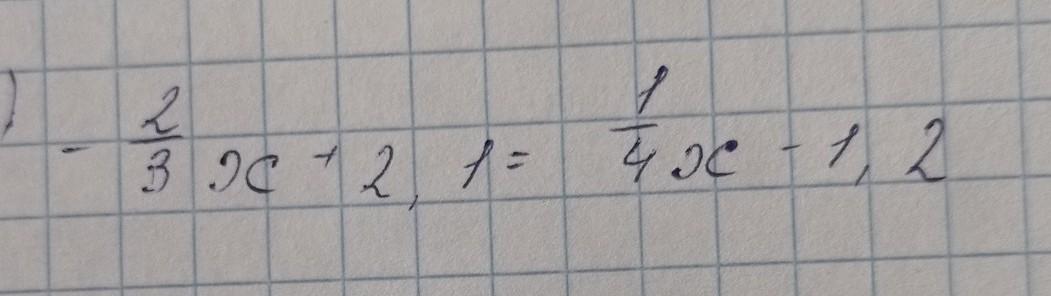 ) - 2/3 x + 2,1 = 1/4 x - 1,2